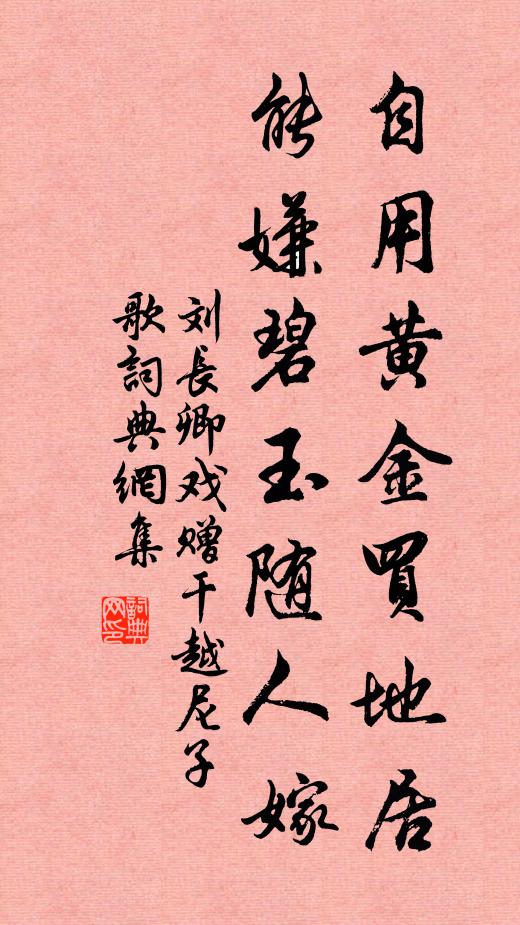 自用黄金買地居
能嫌碧玉随人嫁
刘長卿戏赠干越尼子
歌詞典網集
詞典
网印